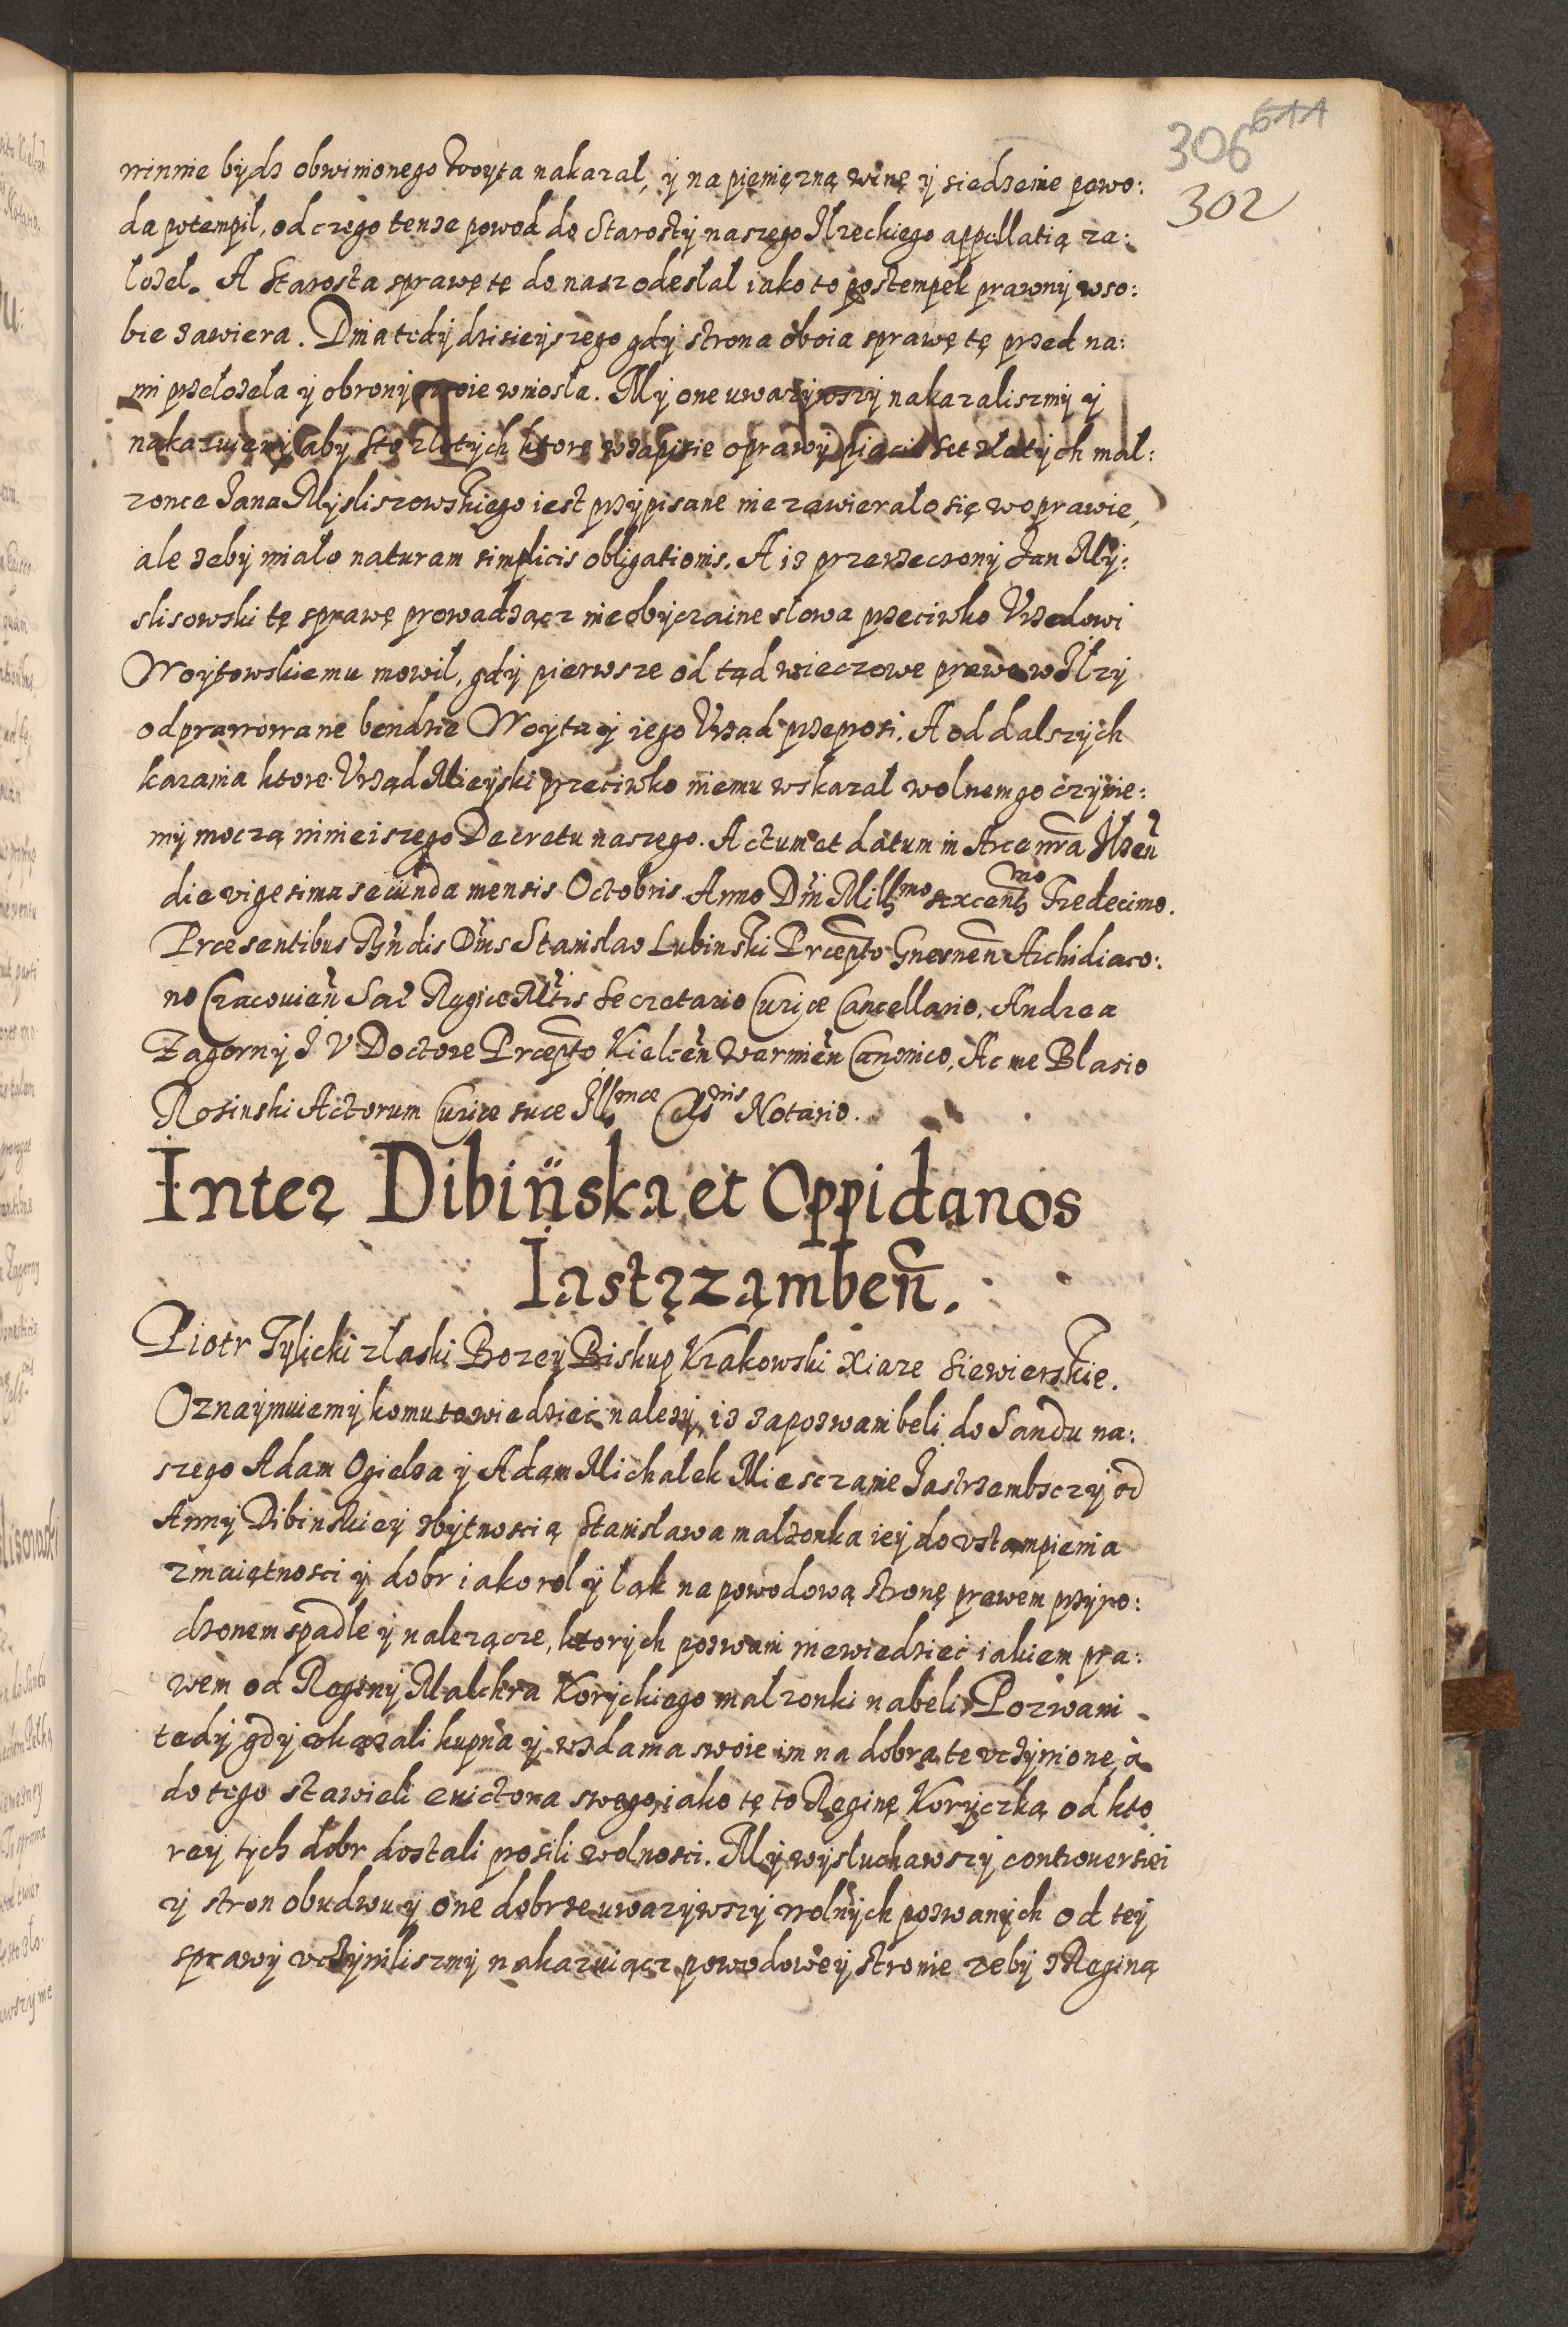 611
306
302
winnie bydz obwinionego Woyta nakazał, y na pieniężną winę y siedzenie powo:
da potempil, od czego tenze powod do Starosty naszego Ilzeckiego appellatią za:
lozel. A Starosta sprawę tę do nasz odesłał iako to postempek prawny w so:
bie zawiera. Dnia tedy dzisieyszego gdy strona oboia sprawę tę przed na:
mi przełozeła y obrony swoie wniosła. My one uwazywszy nakazalismy y
nakazuiemy aby sto złotych ktore w zapisie oprawy piąci set złotych mał:
zonce Jana Mysliszowskiego iest przypisane nie zawierało się w oprawie,
ale zeby miało naturam simplicis obligationis. A iz przerzeczony Jan My:
slisowski tę sprawę prowadzącz nieobyczaine słowa przeciwko Vrzedowi
Woytowskiemu mowil, gdy pierwsze od tąd wieczowe prawo w Ilzy
odprawowane bendzie Woyta y iego Vrząd przeprosi. A od dalszych
karania ktore Vrząd Mieyski przeciwko niemu wskazał wolnem go czynie:
my moczą ninieiszego Decretu naszego. Actum et datum in Arce nra Ilzen
die vigesima secunda mensis Octobris Anno Dni Millmo sexcentmo Tredecimo.
Præsentibus Rndis Dnis Stanislao Lubinski Præpto Gnesnen Archidiaco:
no Cracouien Sac Regiæ Mtis Secretario Curiæ Cancellario, Andrea
Zagorny J V Doctore Præpto Kielcen Warmien Canonico, Ac me Blasio
Rosinski Actorum Curiæ suæ Illmæ Celsnis Notario.
Inter Dibińska et Oppidanos
Iastrząmben.
Piotr Tylicki z łaski Bozey Biskup Krakowski Xiaze Siewierskie.
Oznaymuiemy komu to wiedzieć nalezy, iz zapozwani beli do Sandu na:
szego Adam Ogielza y Adam Michalek Miesczanie Jastrzembsczy od
Anny Dibinskiey zbytnoscią Stanisława malzonka iey do vstampienia
z maiętnosci y dobr iako rol y łąk na powodową stronę prawem przyro:
dzonem spadłe y nalezącze, ktorych pozwani niewiedzieć iakiem pra:
wem od Reginy Malchra Koryckiego malzonki nabeli. Pozwani
tedy gdy okazali kupna y wzdania swoie im na dobra te vczynione, a
do tego stawieli euictora swego, iako tę to Reginę Koryczką od kto
rey tych dobr dostali prosili wolnosci. My wysłuchawszy controuersiei
y stron obudwu y one dobrze uwazywszy wolnych pozwanych od tey
sprawy vczynilismy nakazuiącz powodowey stronie zeby z Reginą